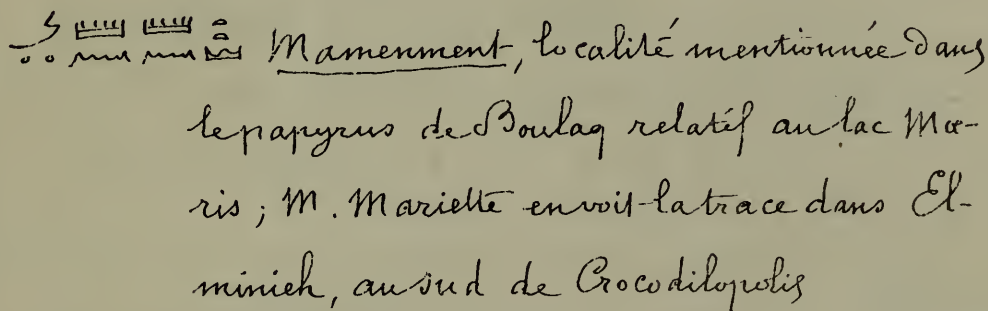 Mamenment, localité mentionnée dans
le papyrus de Boulaq relatif au lac Mœ-
ris ; M. Mariette en voit la trace dans El-
minieh, au sud de Crocodilopolis